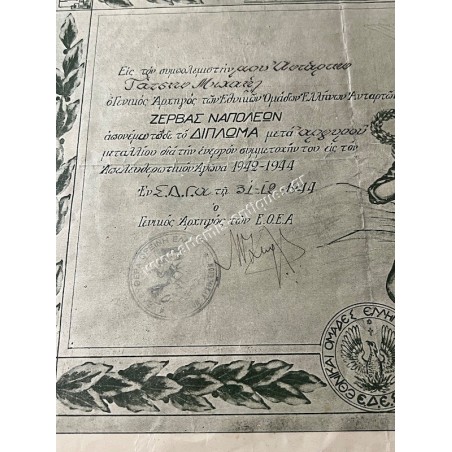 Εἰς τὸν συμπολεμιστήν μου Ἀντάρτην
Γάτσιον Μιχαήλ
ὁ Γενικὸς Ἀρχηγὸς τῶν Ἐθνικῶν Ὁμάδων Ἑλλήνων Ἀνταρτῶν
ΖΕΡΒΑΣ ΝΑΠΟΛΕΩΝ
ἀπονέμω τόδε τὸ ΔΙΠΛΩΜΑ μετὰ ἀργυροῦ
μεταλλίου διὰ τὴν ἐνεργὸν συμμετοχήν του εἰς τὸν
Ἀπελευθερωτικὸν Ἀγῶνα 1942-1944
Ἐν Σ.Δ.Γ.Α τῇ 31-12-1944
ὁ
Γενικὸς Ἀρχηγὸς τῶν Ε.Ο.Ε.Α
ΕΘΝΙΚΑΙ ΟΜΑΔΕΣ ΕΛΛΗ
ΕΔΕΣ